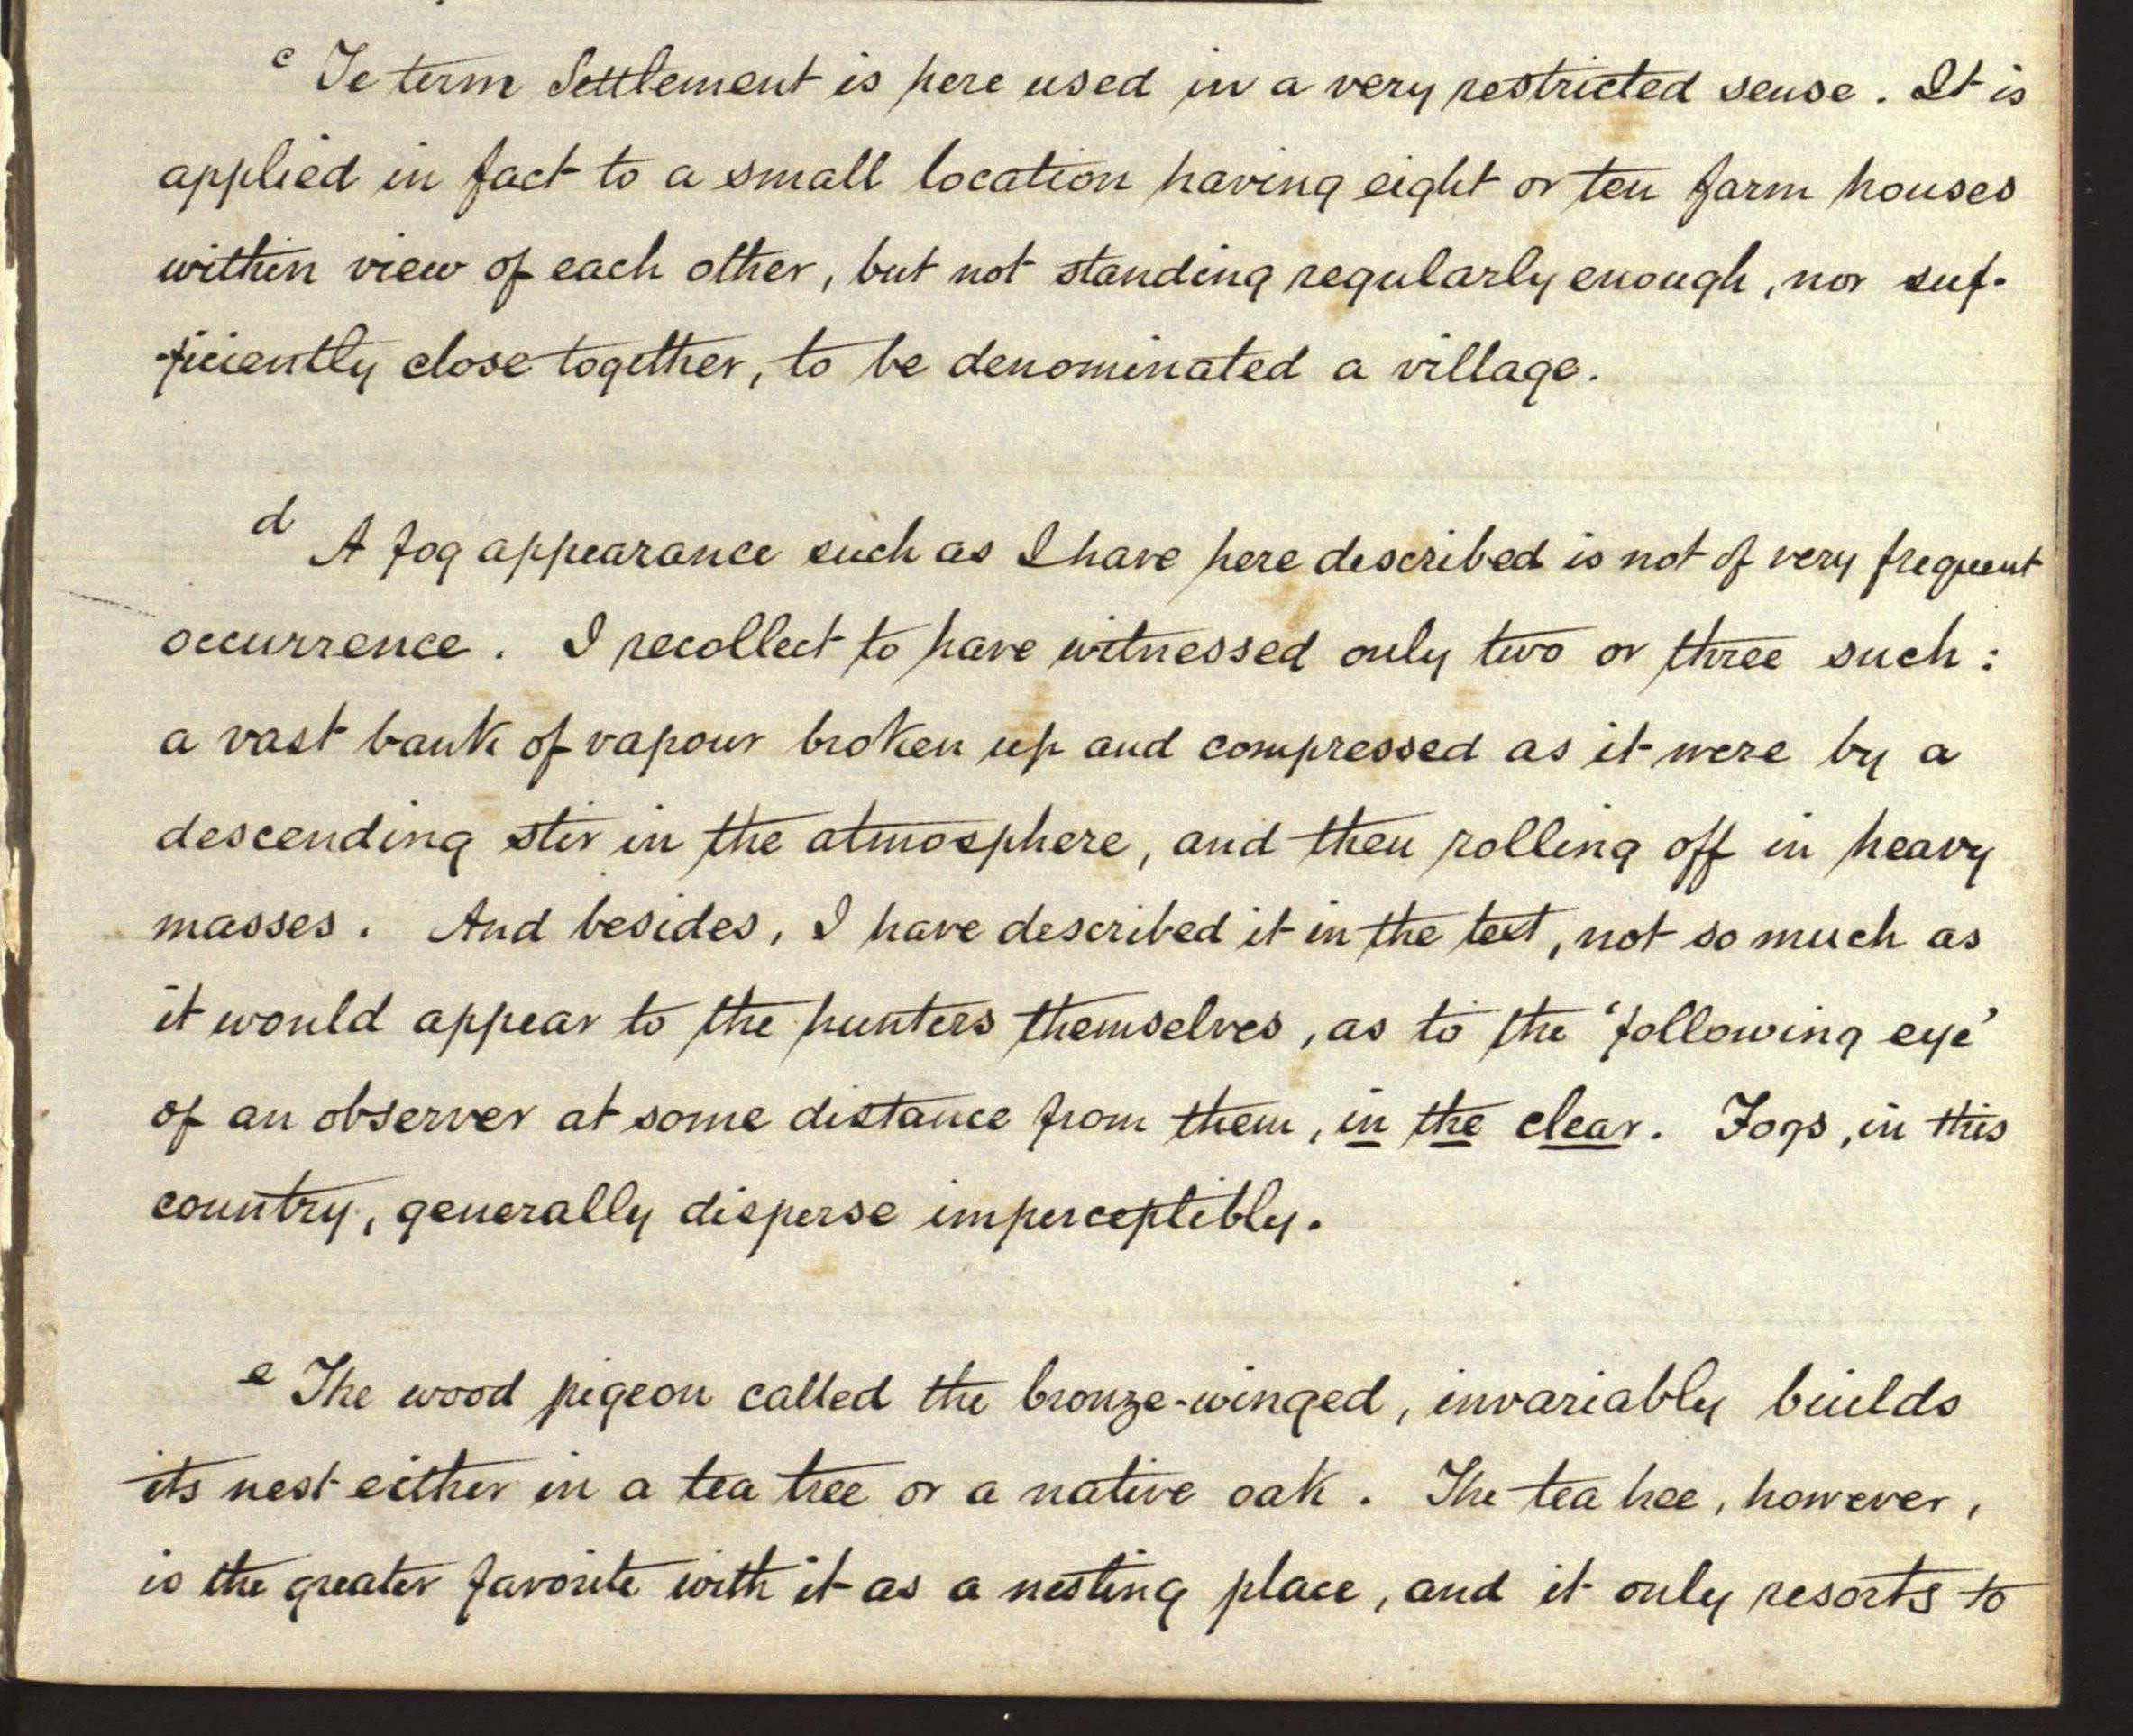 c Te term Settlement is here used in a very restricted sense. It is
applied in fact to a small location having eight or ten farm houses
within view of each other, but not standing regularly enough, nor suf-
-ficiently close together, to be denominated a village.
d A fog appearance such as I have here described is not of very frequent
occurrence. I recollect to have witnessed only two or three such:
a vast bank of vapour broken up and compressed as it were by a
descending stir in the atmosphere, and then rolling off in heavy
masses. And besides, I have described it in the text, not so much as
it would appear to the hunters themselves, as to the 'following eye'
of an observer at some distance from them, in the clear. Fogs, in this
country, generally disperse imperceptibly.
e The wood pigeon called the bronze-winged, invariably builds
its nest either in a tea tree or a native oak. The tea tree, however,
is the greater favorite with it as a nesting place, and it only resorts to